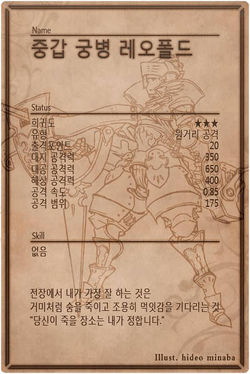 Name
중갑 궁병 레오폴드
Status
희귀도 ★★★
유형 원거리 공격
출격포인트 20
대지 공격력 350
대공 공격력 650
해상 공격력 400
공격 속도 0.85
공격 범위 175
Skill
없음
전장에서 내가 가장 잘 하는 것은
거미처럼 숨을 죽이고 조용히 먹잇감을 기다리는 것
"당신이 죽을 장소는 내가 정합니다."
Illust. hideo minaba